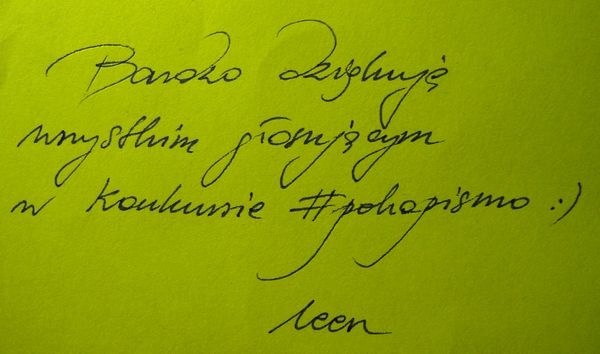 Bardzo dziękuję
wszystkim głosującym
w konkursie #pokapismo :)
leen